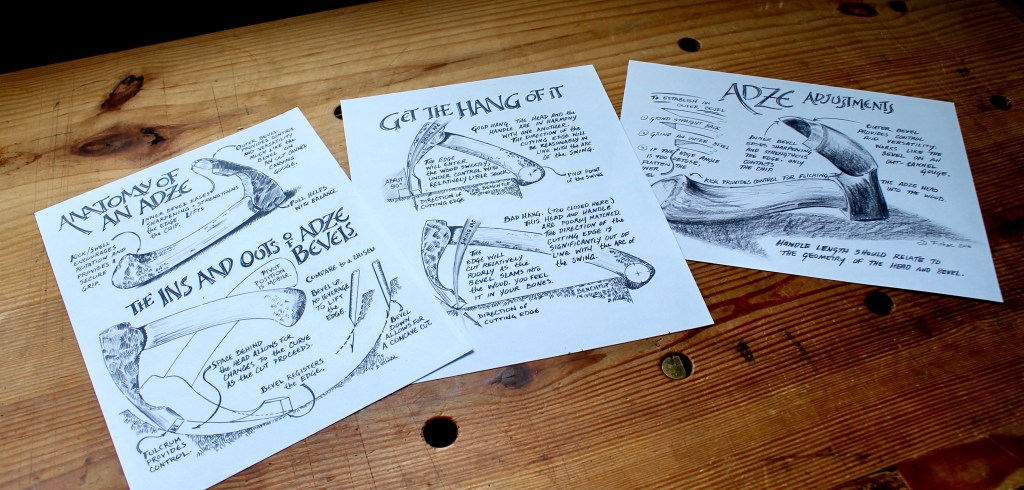 ANATOMY OF
AN ADZE
OUTER BEVEL
PROVIDES CONTROL
AND VERSATILITY.
WORKS LIKE THE
BEVEL ON AN
OUT-CANNEL
GOUGE.
INNER BEVEL EASES
SHARPENING + STRENGTHENS
the EDGE. LIFTS
the CHIP.
KICK/SWELL
ENCOURAGES
ROTATION AND
PROVIDES A
SECURE
GRIP.
POLL HELPS
WITH BALANCE.
THE INS AND OUTS OF ADZE
BEVELS
PIVOT
POSITION
MOBILE.
COMPARE to a CHISEL
BEVEL UP.
NO LEVERAGE
TO LIFT
the EDGE.
BEVEL
DOWN
ALLOWS FOR
A CONCAVE CUT.
SPACE BEHIND
the HEAD ALLOWS FOR
CHANGES TO the CURVE
AS the CUT PROCEEDS.
BEVEL REGISTERS
the EDGE.
FULCRUM
PROVIDES
CONTROL.
GET THE HANG OF IT
GOOD HANG. THE HEAD AND the
HANDLE ARE IN HARMONY
WITH ONE ANOTHER.
THE DIRECTION OF the
CUTTING EDGE WILL
BE REASONABLY IN
LINE WITH the ARC
OF the SWING.
THE EDGE
WILL ENTER
the WOOD SWEETLY,
UNDER CONTROL WITH
RELATIVELY LITTLE SHOCK.
ABOUT
90°
DIRECTION OF
CUTTING EDGE
BENCHTOP
PIVOT POINT
of the SWING
BAD HANG. (TOO CLOSED HERE)
THIS HEAD AND HANDLE
ARE POORLY MATCHED.
THE DIRECTION OF the
CUTTING EDGE IS
SIGNIFICANTLY OUT OF
LINE WITH the ARC OF
the SWING.
THE
EDGE WILL
CUT RELATIVELY
POORLY AS the
BEVEL SLAMS INTO
the WOOD. YOU FEEL
IT IN YOUR BONES.
BENCHTOP
DIRECTION OF
CUTTING EDGE
ADZE ADJUSTMENTS
TO ESTABLISH AN
OUTER BEVEL
① GRIND STRAIGHT BACK
② GRIND the OUTER BEVEL
③ IF the EDGE ANGLE
IS TOO
INNER BEVEL
EASES SHARPENING
AND STRENGTHENS
the EDGE. ALSO
CONTACTS
the CHIP.
OUTER BEVEL
PROVIDES CONTROL
AND VERSATILITY.
WORKS LIKE THE
BEVEL ON AN
OUT-CANNEL
GOUGE.
KICK PROVIDES CONTROL FOR FLICKING
THE ADZE HEAD
INTO the WOOD.
HANDLE LENGTH SHOULD RELATE TO
the GEOMETRY OF the HEAD AND BEVEL.